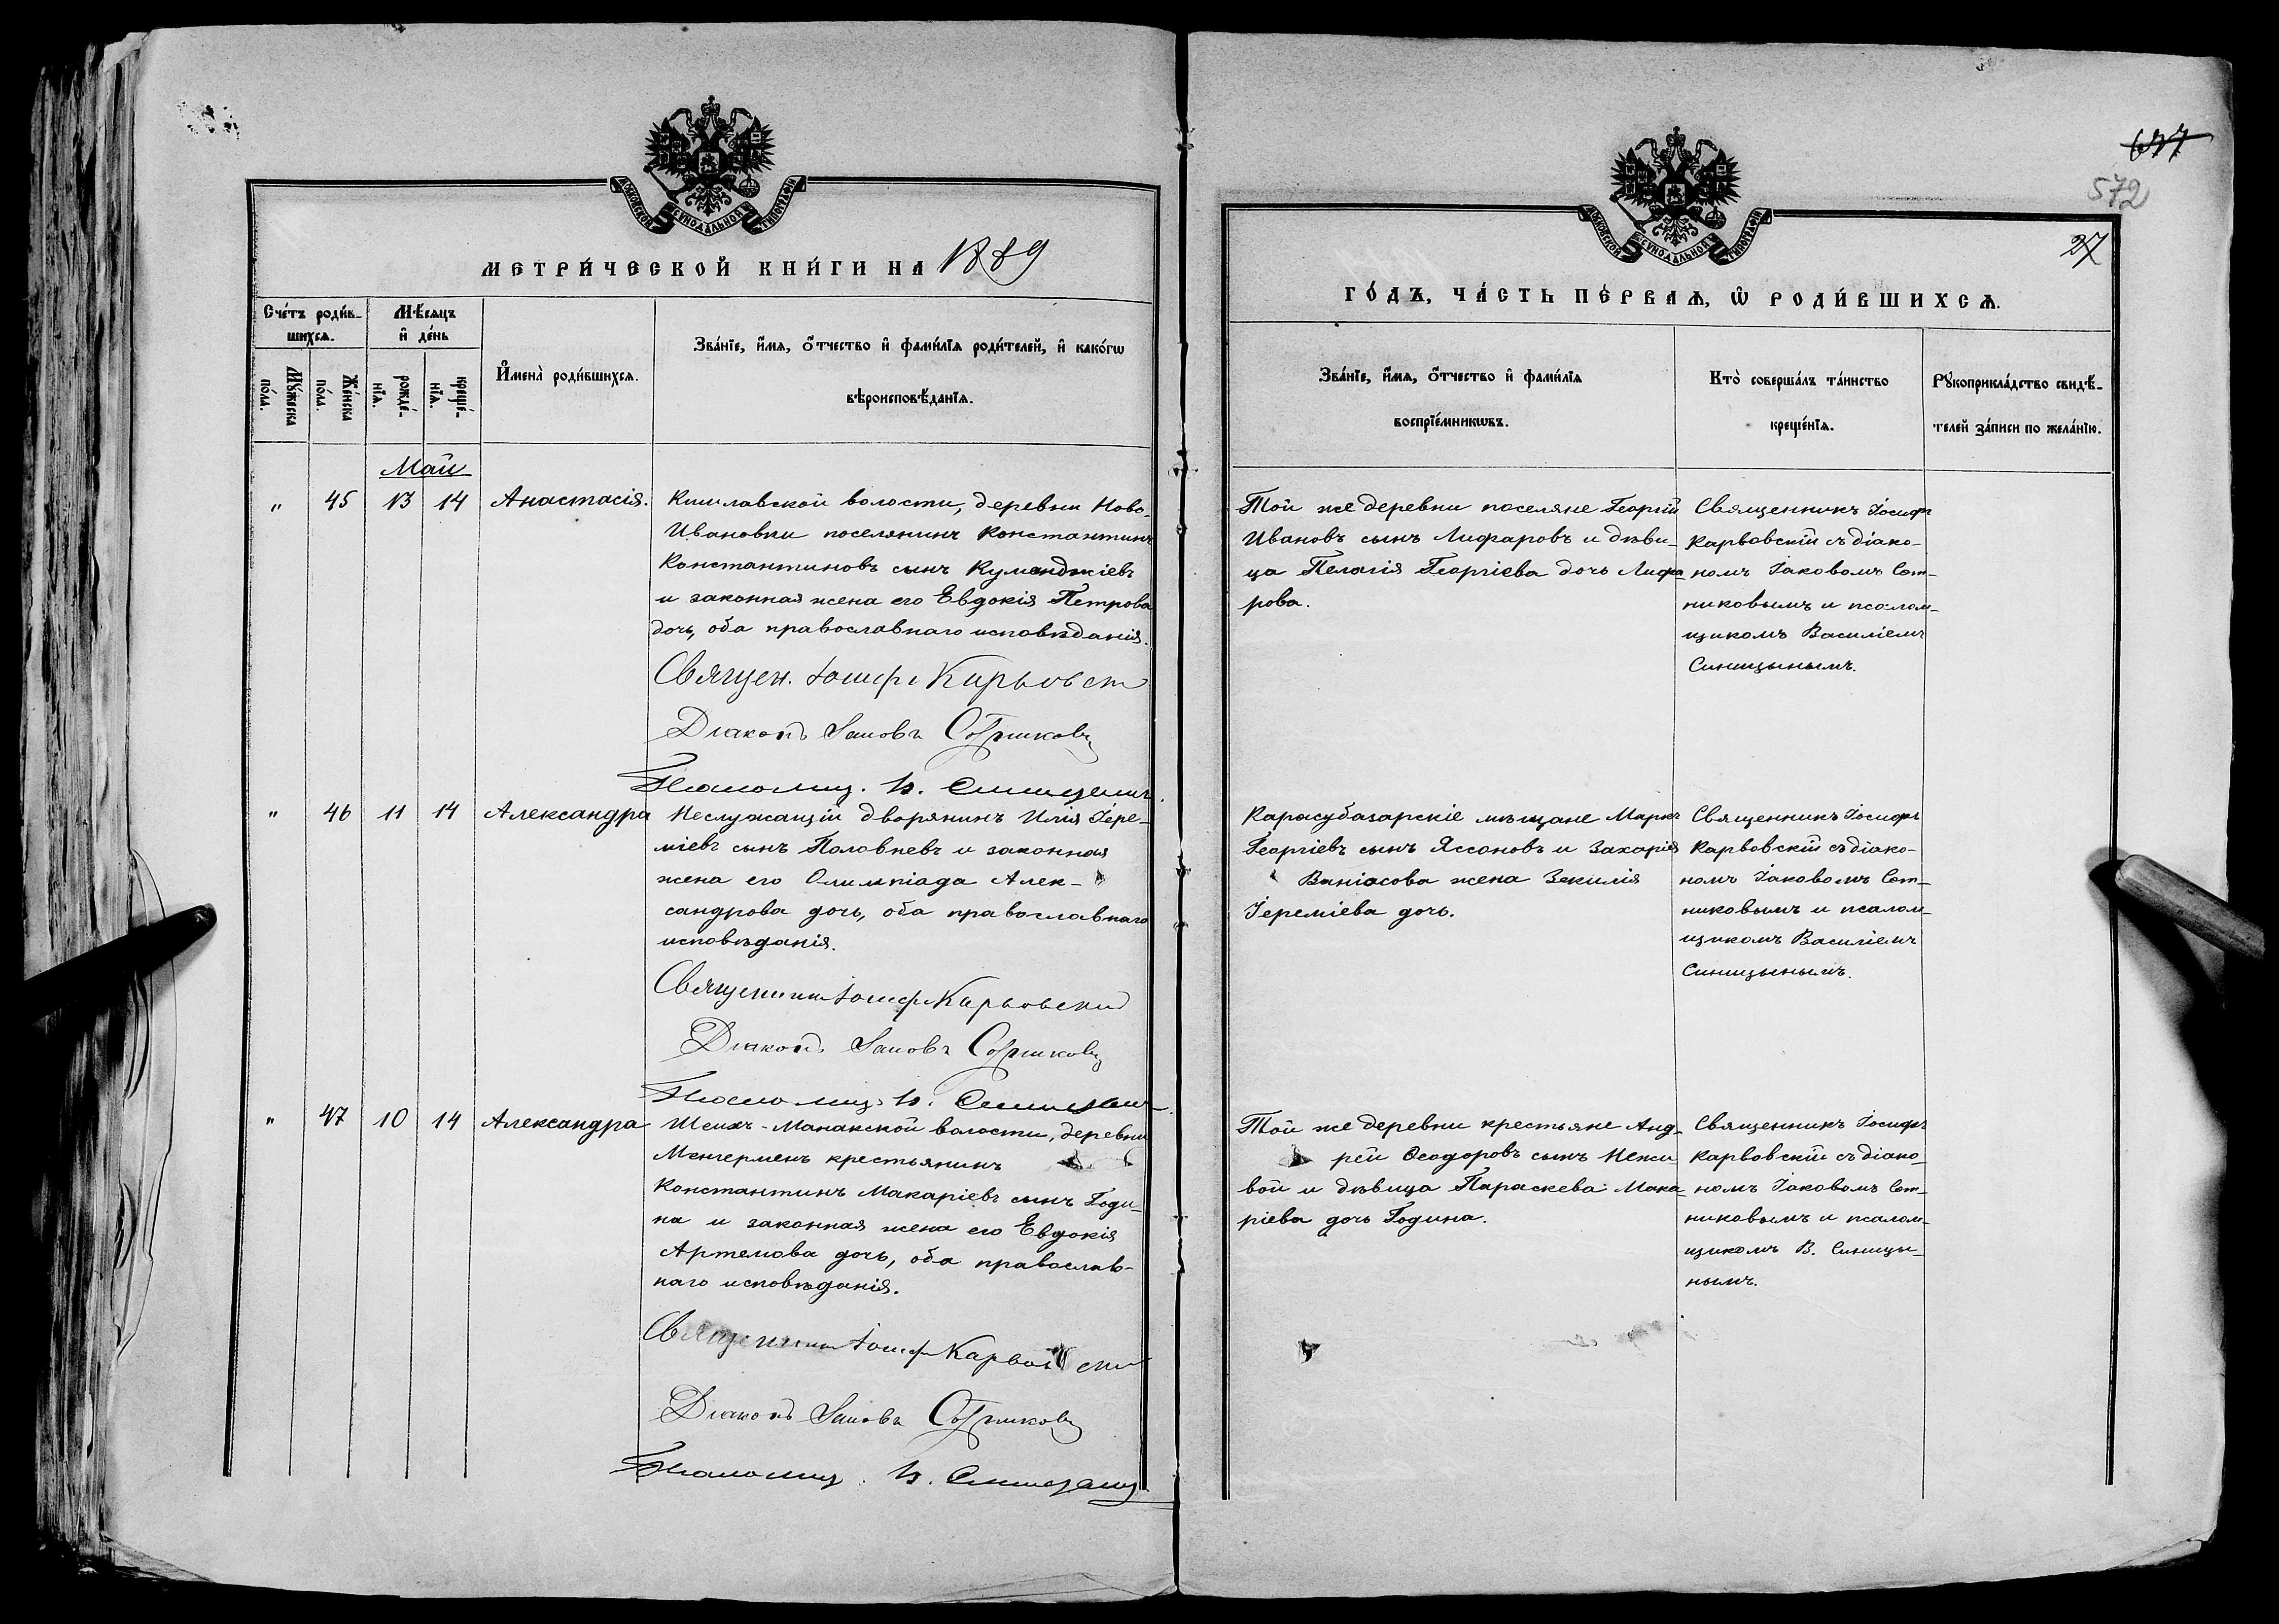 МОСКОВСКОЙ СѴНОДАЛЬНОЙ ТИПОГРАФІИ
МЕТРИ́ЧЕСКОЙ КНИ́ГИ НА 1889
Сче́тъ роди́в-
шихсѧ.
Мѣ́сяцъ
и҆ де́нь
Мꙋ́жеска
по́ла.
Же́нска
по́ла.
рожде́-
нїѧ.
креще́-
нїѧ.
И҆мена̀ роди́вшихсѧ.
Зва́нїе, и҆́мѧ, ѻ҆́тчество и҆ фами́лїѧ роди́телей, и҆ како́гѡ
вѣроисповѣ́данїѧ.
Май
" 45 13 14 Анастасія.
Кишлавской волости, деревни Ново-
Ивановки поселянинъ Константинъ
Константиновъ сынъ Куманджіевъ
и законная жена его Евдокія Петрова
дочь, оба православнаго исповѣданія.
Священ. Іосифъ Карвовск
Діаконъ Іаковъ Сотниковъ
Псаломщ. В. Синицынъ.
" 46 11 14 Александра
Неслужащій дворянинъ Илія Іере-
міевъ сынъ Половневъ и законная
жена его Олимпіада Алек-
сандрова дочь, оба православнаго
исповѣданія.
Священникъ Іосифъ Карвовскій
Діаконъ Іаковъ Сотниковъ
Псаломщ. В. Синицынъ.
" 47 10 14 Александра
Шеихъ-Манакской волости, деревни
Менгерменъ крестьянинъ
Константинъ Макаріевъ сынъ Годи-
на и законная жена его Евдокія
Артемова дочь, оба православ-
наго исповѣданія.
Священникъ Іосифъ Карвовскій
Діаконъ Іаковъ Сотниковъ
Псаломщ. В. Синицынъ
637
572
27
МОСКОВСКОЙ СѴНОДАЛЬНОЙ ТИПОГРАФІИ
ГО́ДЪ, ЧА́СТЬ ПЕ́РВАѦ, Ѡ҆ РОДИ́ВШИХСѦ.
Зва́нїе, и҆́мѧ, ѻ҆́тчество и҆ фами́лїѧ
воспрїе́мникѡвъ.
Кто̀ соверша́лъ та́инство
креще́нїѧ.
Рꙋкоприкла́дство свидѣ́-
телей за́писи по жела́нїю.
Той же деревни поселяне Георгій
Ивановъ сынъ Лифаровъ и дѣви-
ца Пелагія Георгіева дочь Лифа-
рова.
Священникъ Іосифъ
Карвовскій съ діако-
номъ Іаковомъ Сот-
никовымъ и псалом-
щикомъ Василіемъ
Синицынымъ.
Карасубазарскіе мѣщане Маркъ
Георгіевъ сынъ Яссоновъ и Захарія
Ваніасова жена Зекилія
Іереміева дочь.
Священникъ Іосифъ
Карвовскій съ діако-
номъ Іаковомъ Сот-
никовымъ и псалом-
щикомъ Василіемъ
Синицынымъ.
Той же деревни крестьяне Анд-
рей Ѳеодоровъ сынъ Нежи
вой и дѣвица Параскева Мака-
ріева дочь Година.
Священникъ Іосифъ
Карвовскій съ діако-
номъ Іаковомъ Сот-
никовымъ и псалом-
щикомъ В. Синицы-
нымъ.